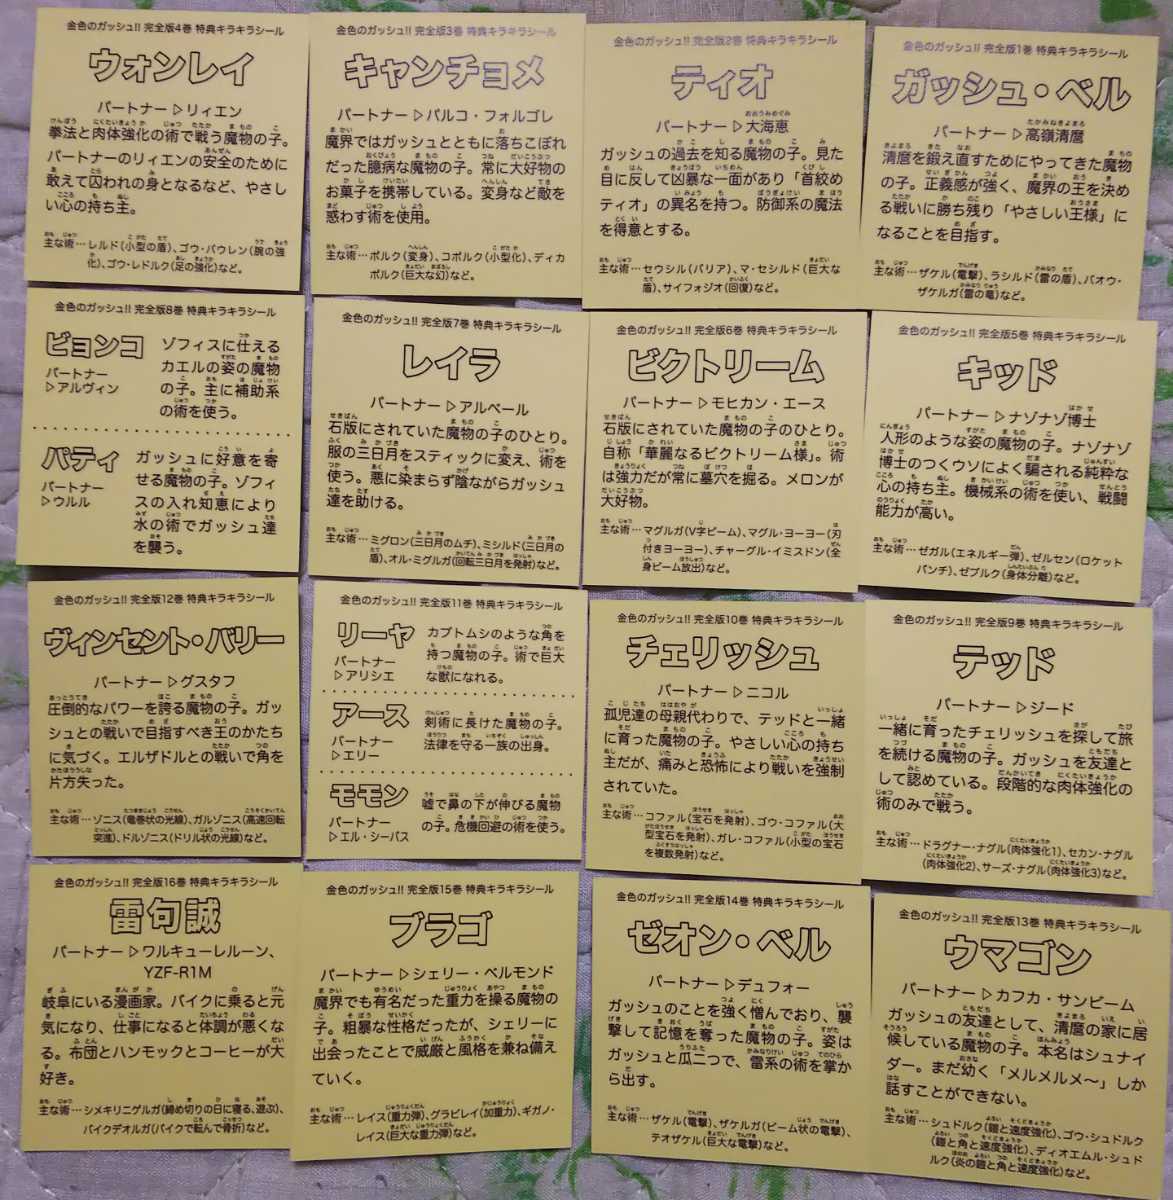 金色のガッシュ!! 完全版4巻 特典キラキラシール
ウォンレイ
パートナー▷リィエン
拳法と肉体強化の術で戦う魔物の子。
パートナーのリィエンの安全のために
敢えて囚われの身となるなど、やさし
い心の持ち主。
主な術…レルド(小型の盾)、ゴウ・バウレン(腕の強
化)、ゴウ・レドルク(足の強化)など。
金色のガッシュ!! 完全版3巻 特典キラキラシール
キャンチョメ
パートナー▷パルコ・フォルゴレ
魔界ではガッシュとともに落ちこぼれ
だった臆病な魔物の子。常に大好物の
お菓子を携帯している。変身など敵を
惑わす術を使用。
主な術…ポルク(変身)、コポルク(小型化)、ディカ
ポルク(巨大な幻)など。
金色のガッシュ!! 完全版2巻 特典キラキラシール
ティオ
パートナー▷大海恵
ガッシュの過去を知る魔物の子。見た
目に反して凶暴な一面があり「首絞め
ティオ」の異名を持つ。防御系の魔法
を得意とする。
主な術…セウシル(バリア)、マ・セシルド(巨大な
盾)、サイフォジオ(回復)など。
金色のガッシュ!! 完全版1巻 特典キラキラシール
ガッシュ・ベル
パートナー▷高嶺清麿
清麿を鍛え直すためにやってきた魔物
の子。正義感が強く、魔界の王を決め
る戦いに勝ち残り「やさしい王様」に
なることを目指す。
主な術…ザケル(電撃)、ラシルド(雷の盾)、バオウ・
ザケルガ(雷の竜)など。
金色のガッシュ!! 完全版8巻 特典キラキラシール
ビョンコ
パートナー
▷アルヴィン
ゾフィスに仕える
カエルの姿の魔物
の子。主に補助系
の術を使う。
パティ
パートナー
▷ウルル
ガッシュに好意を寄
せる魔物の子。ゾフィ
スの入れ知恵により
水の術でガッシュ達
を襲う。
金色のガッシュ!! 完全版7巻 特典キラキラシール
レイラ
パートナー▷アルベール
石版にされていた魔物の子のひとり。
服の三日月をスティックに変え、術を
使う。悪に染まらず陰ながらガッシュ
達を助ける。
主な術…ミグロン(三日月のムチ)、ミシルド(三日月の
盾)、オル・ミグルガ(回転三日月を発射)など。
金色のガッシュ!! 完全版6巻 特典キラキラシール
ビクトリーム
パートナー▷モヒカン・エース
石版にされていた魔物の子のひとり。
自称「華麗なるビクトリーム様」。術
は強力だが常に墓穴を掘る。メロンが
大好物。
主な術…マグルガ(V字ビーム)、マグル・ヨーヨー(刃
付きヨーヨー)、チャーグル・イミスドン(全
身ビーム放出)など。
金色のガッシュ!! 完全版5巻 特典キラキラシール
キッド
パートナー▷ナゾナゾ博士
人形のような姿の魔物の子。ナゾナゾ
博士のつくウソによく騙される純粋な
心の持ち主。機械系の術を使い、戦闘
能力が高い。
主な術…ゼガル(エネルギー弾)、ゼルセン(ロケット
パンチ)、ゼブルク(身体分離)など。
金色のガッシュ!! 完全版12巻 特典キラキラシール
ヴィンセント・バリー
パートナー▷グスタフ
圧倒的なパワーを誇る魔物の子。ガッ
シュとの戦いで目指すべき王のかたち
に気づく。エルザドルとの戦いで角を
片方失った。
主な術…ゾニス(竜巻状の光線)、ガルゾニス(高速回転
突進)、ドルゾニス(ドリル状の光線)など。
金色のガッシュ!! 完全版11巻 特典キラキラシール
リーヤ
パートナー
▷アリシエ
カブトムシのような角を
持つ魔物の子。術で巨大
な獣になれる。
アース
パートナー
▷エリー
剣術に長けた魔物の子。
法律を守る一族の出身。
モモン
パートナー
▷エル・シーバス
嘘で鼻の下が伸びる魔物
の子。危機回避の術を使う。
金色のガッシュ!! 完全版10巻 特典キラキラシール
チェリッシュ
パートナー▷ニコル
孤児達の母親代わりで、テッドと一緒
に育った魔物の子。やさしい心の持ち
主だが、痛みと恐怖により戦いを強制
されていた。
主な術…コファル(宝石を発射)、ゴウ・コファル(大
型宝石を発射)、ガレ・コファル(小型の宝石
を複数発射)など。
金色のガッシュ!! 完全版9巻 特典キラキラシール
テッド
パートナー▷ジード
一緒に育ったチェリッシュを探して旅
を続ける魔物の子。ガッシュを友達と
して認めている。段階的な肉体強化の
術のみで戦う。
主な術…ドラグナー・ナグル(肉体強化1)、セカン・ナグル
(肉体強化2)、サーズ・ナグル(肉体強化3)など。
金色のガッシュ!! 完全版16巻 特典キラキラシール
雷句誠
パートナー▷ワルキューレルーン、
YZF-R1M
岐阜にいる漫画家。バイクに乗ると元
気になり、仕事になると体調が悪くな
る。布団とハンモックとコーヒーが大
好き。
主な術…シメキリニゲルガ(締め切りの日に寝る、遊ぶ)、
バイクデオルガ(バイクで転んで骨折)など。
金色のガッシュ!! 完全版15巻 特典キラキラシール
ブラゴ
パートナー▷シェリー・ベルモンド
魔界でも有名だった重力を操る魔物の
子。粗暴な性格だったが、シェリーに
出会ったことで威厳と風格を兼ね備え
ていく。
主な術…レイス(重力弾)、グラビレイ(加重力)、ギガノ・
レイス(巨大な重力弾)など。
金色のガッシュ!! 完全版14巻 特典キラキラシール
ゼオン・ベル
パートナー▷デュフォー
ガッシュのことを強く憎んでおり、襲
撃して記憶を奪った魔物の子。姿は
ガッシュと瓜二つで、雷系の術を掌か
ら出す。
主な術…ザケル(電撃)、ザケルガ(ビーム状の電撃)、
テオザケル(巨大な電撃)など。
金色のガッシュ!! 完全版13巻 特典キラキラシール
ウマゴン
パートナー▷カフカ・サンビーム
ガッシュの友達として、清麿の家に居
候している魔物の子。本名はシュナイ
ダー。まだ幼く「メルメルメ〜」しか
話すことができない。
主な術…シュドルク(鎧と速度強化)、ゴウ・シュドルク
(鎧と角と速度強化)、ディオエムル・シュド
ルク(炎の鎧と角と速度強化)など。